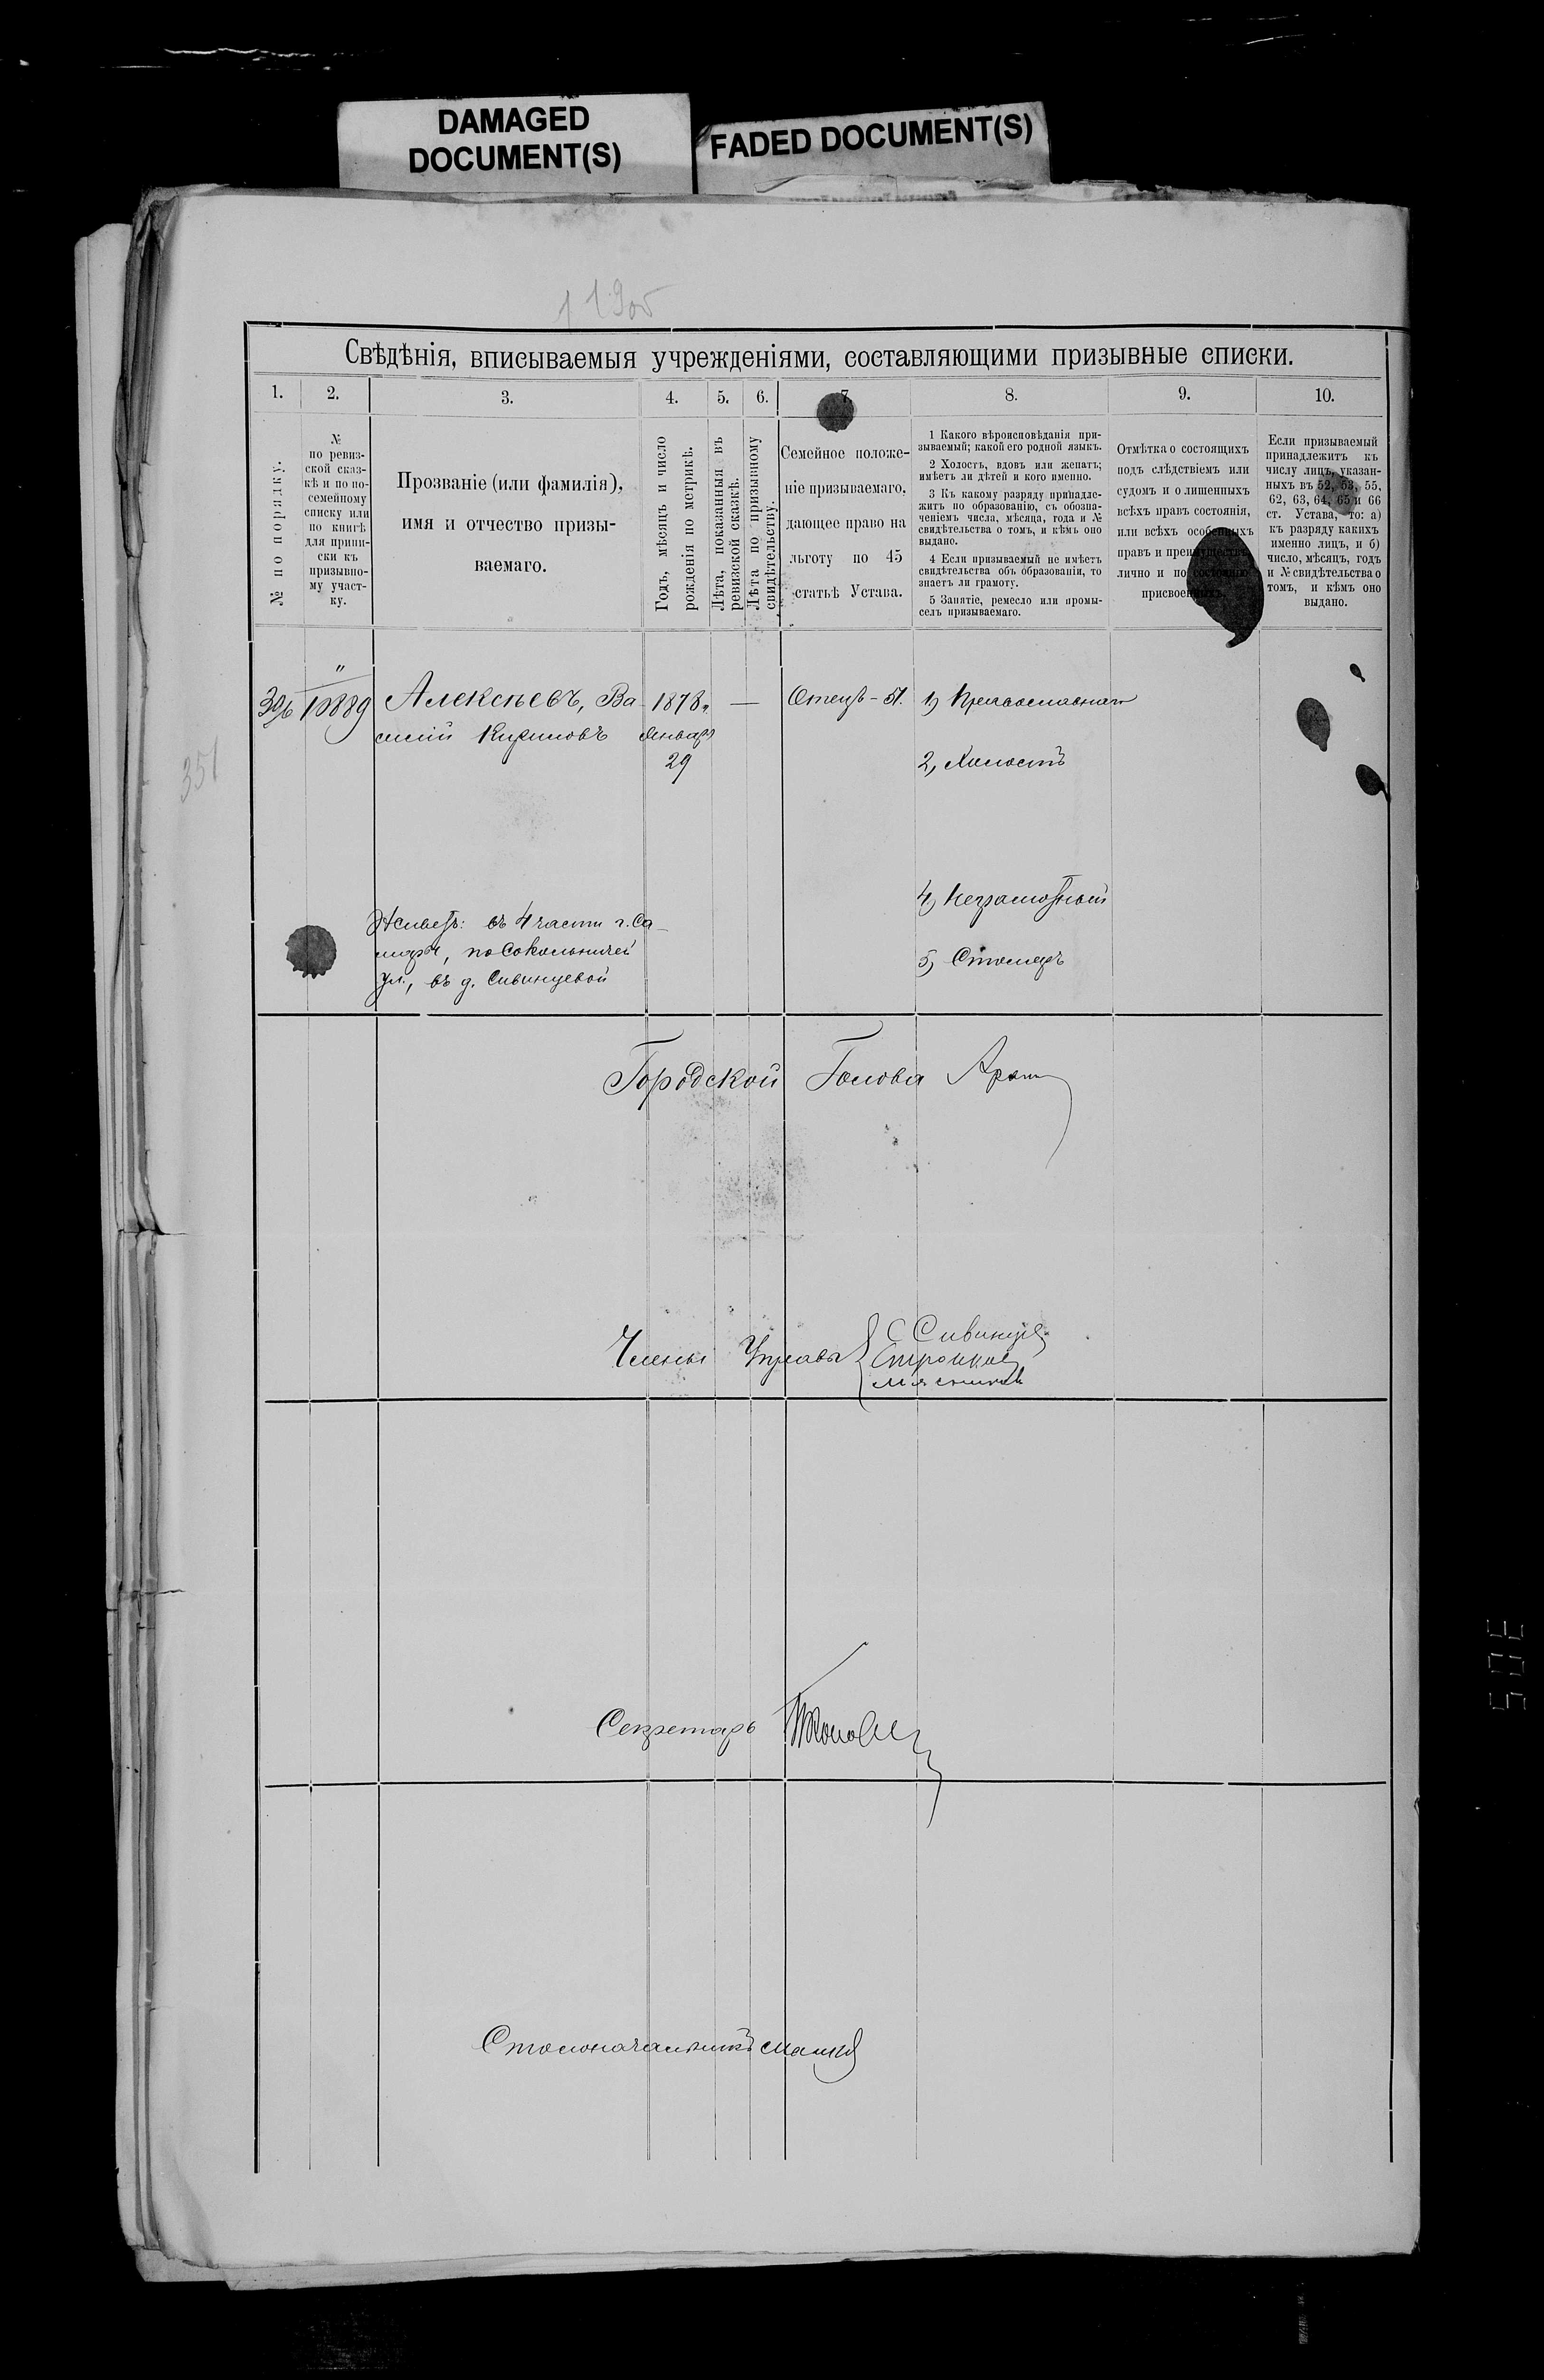 DAMAGED
DOCUMENT(S)
FADED DOCUMENT(S)
Свѣдѣнія, вписываемыя учрежденіями, составляющими призывные списки.
1.
2.
3.
4.
5.
6.
7.
8.
9.
10.
№ по порядку.
№
по ревиз-
ской сказ-
кѣ и по по-
семейному
списку или
по книгѣ
для припи-
ски къ
призывно-
му участ-
ку.
Прозваніе (или фамилія),
имя и отчество призы-
ваемаго.
Годъ, мѣсяцъ и число
рожденія по метрикѣ.
Лѣта, показанныя въ
ревизской сказкѣ.
Лѣта по призывному
свидѣтельству.
Семейное положе-
ніе призываемаго,
дающее право на
льготу по 45
статьѣ Устава.
1 Какого вѣроисповѣданія при-
зываемый; какой его родной языкъ.
2 Холостъ, вдовъ или женатъ;
имѣетъ ли дѣтей и кого именно.
3 Къ какому разряду принадле-
житъ по образованію, съ обозна-
ченіемъ числа, мѣсяца, года и №
свидѣтельства о томъ, и кѣмъ оно
выдано.
4 Если призываемый не имѣетъ
свидѣтельства объ образованіи, то
знаетъ ли грамоту.
5 Занятіе, ремесло или промы-
селъ призываемаго.
Отмѣтка о состоящихъ
подъ слѣдствіемъ или
судомъ и о лишенныхъ
всѣхъ правъ состоянія,
или всѣхъ особенныхъ
правъ и преимуществъ,
лично и по состоянію
присвоенныхъ.
Если призываемый
принадлежитъ къ
числу лицъ, указан-
ныхъ въ 52, 53, 55,
62, 63, 64, 65 и 66
ст. Устава, то: а)
къ разряду какихъ
именно лицъ, и б)
число, мѣсяцъ, годъ
и № свидѣтельства о
томъ, и кѣмъ оно
выдано.
"
10889
Алексѣевъ, Ва-
силій Кириловъ
1878
Январь
29
—
Отецъ - 51.
1) Православнаго
2) Холостъ
4) Неграмотный
5) Столяръ
351
Живетъ: въ 4 части г. Са-
мары, по Сокольничей
ул., въ д. Сивинцевой
Городской Голова
Члены Управы
Секретарь
Столоначальникъ
305